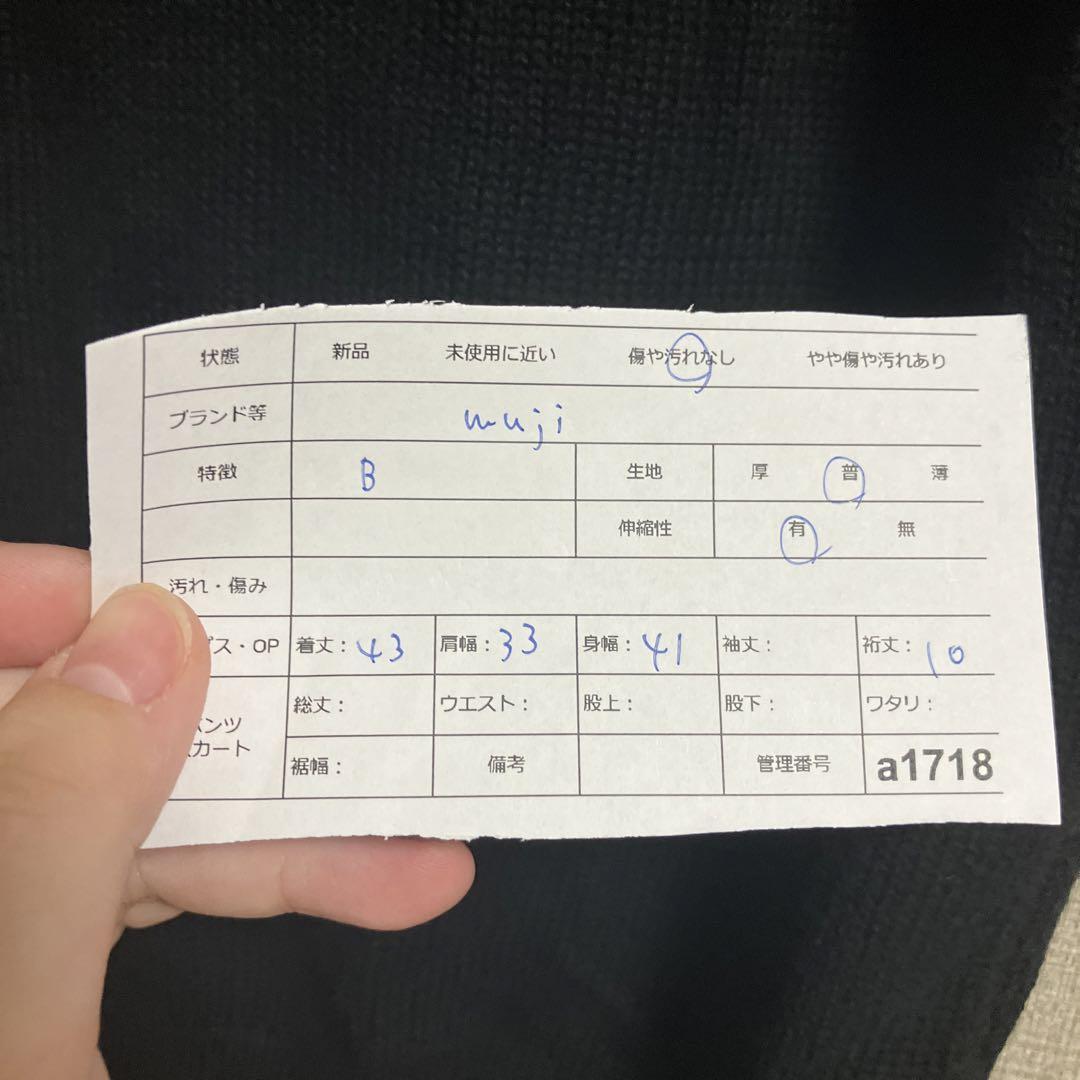 状態 新品 未使用に近い 傷や汚れなし やや傷や汚れあり
ブランド等 muji
特徴 B 生地 厚 普 薄
伸縮性 有 無
汚れ・傷み
プス・OP 着丈：43 肩幅：33 身幅：41 袖丈： 裄丈：10
パンツ 総丈： ウエスト： 股上： 股下： ワタリ：
カート 裾幅： 備考 管理番号 a1718